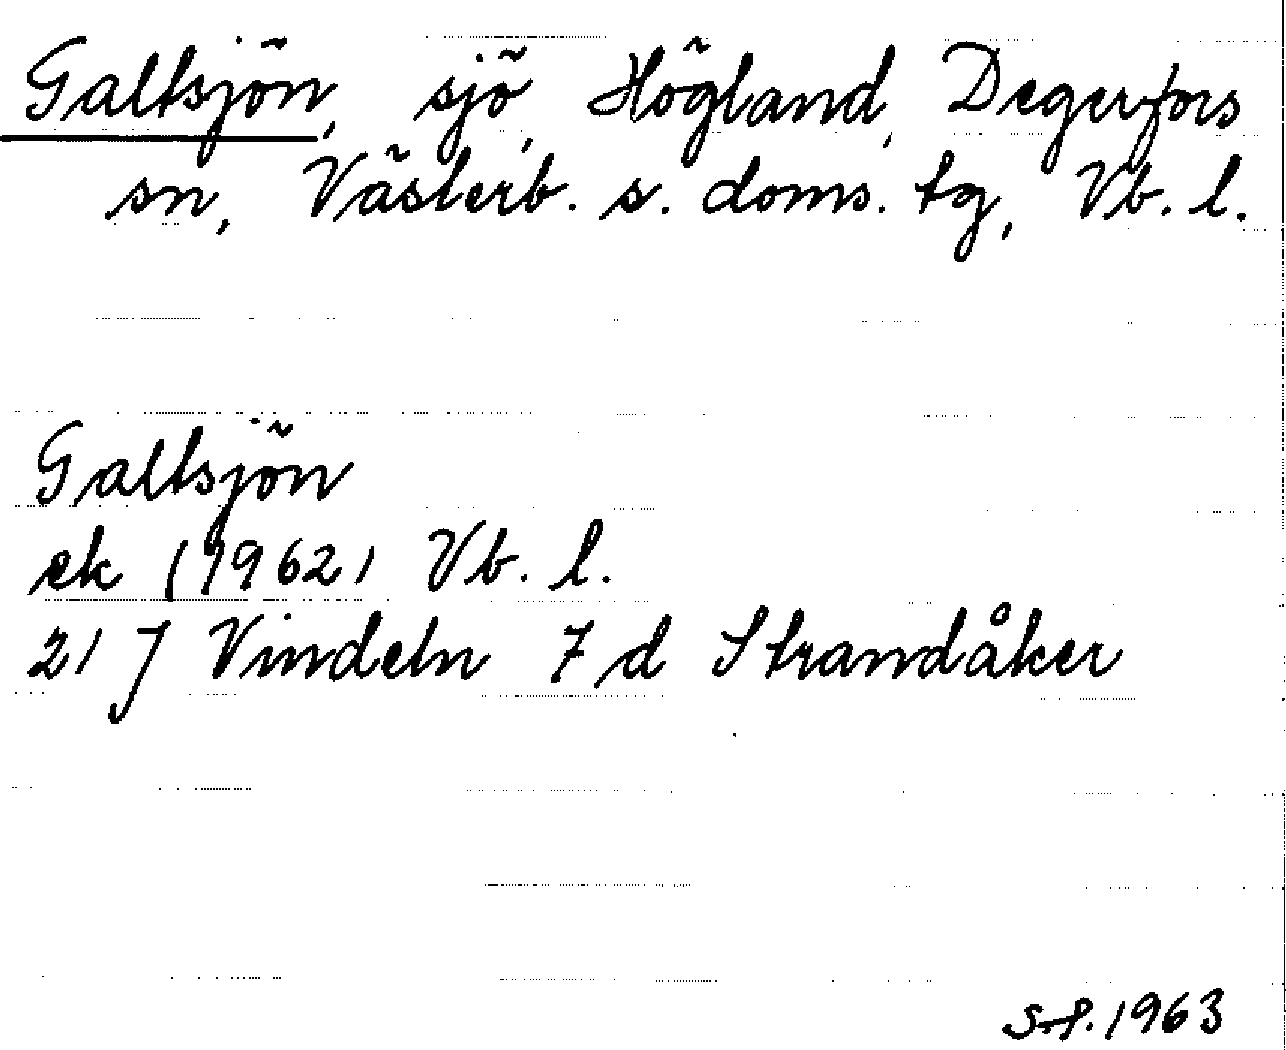 Galtsjön, sjö, Högland, Degerfors
sn, Västerb. s. doms. tg, Vb. l.
Galtsjön
ek (1962) Vb. l.
21 J Vindeln 7 d Strandåker
1963